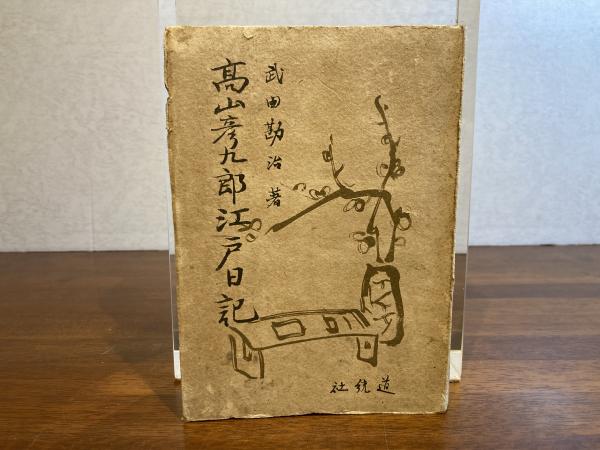 高山彦九郎江戸日記
武田勘治著
社統道